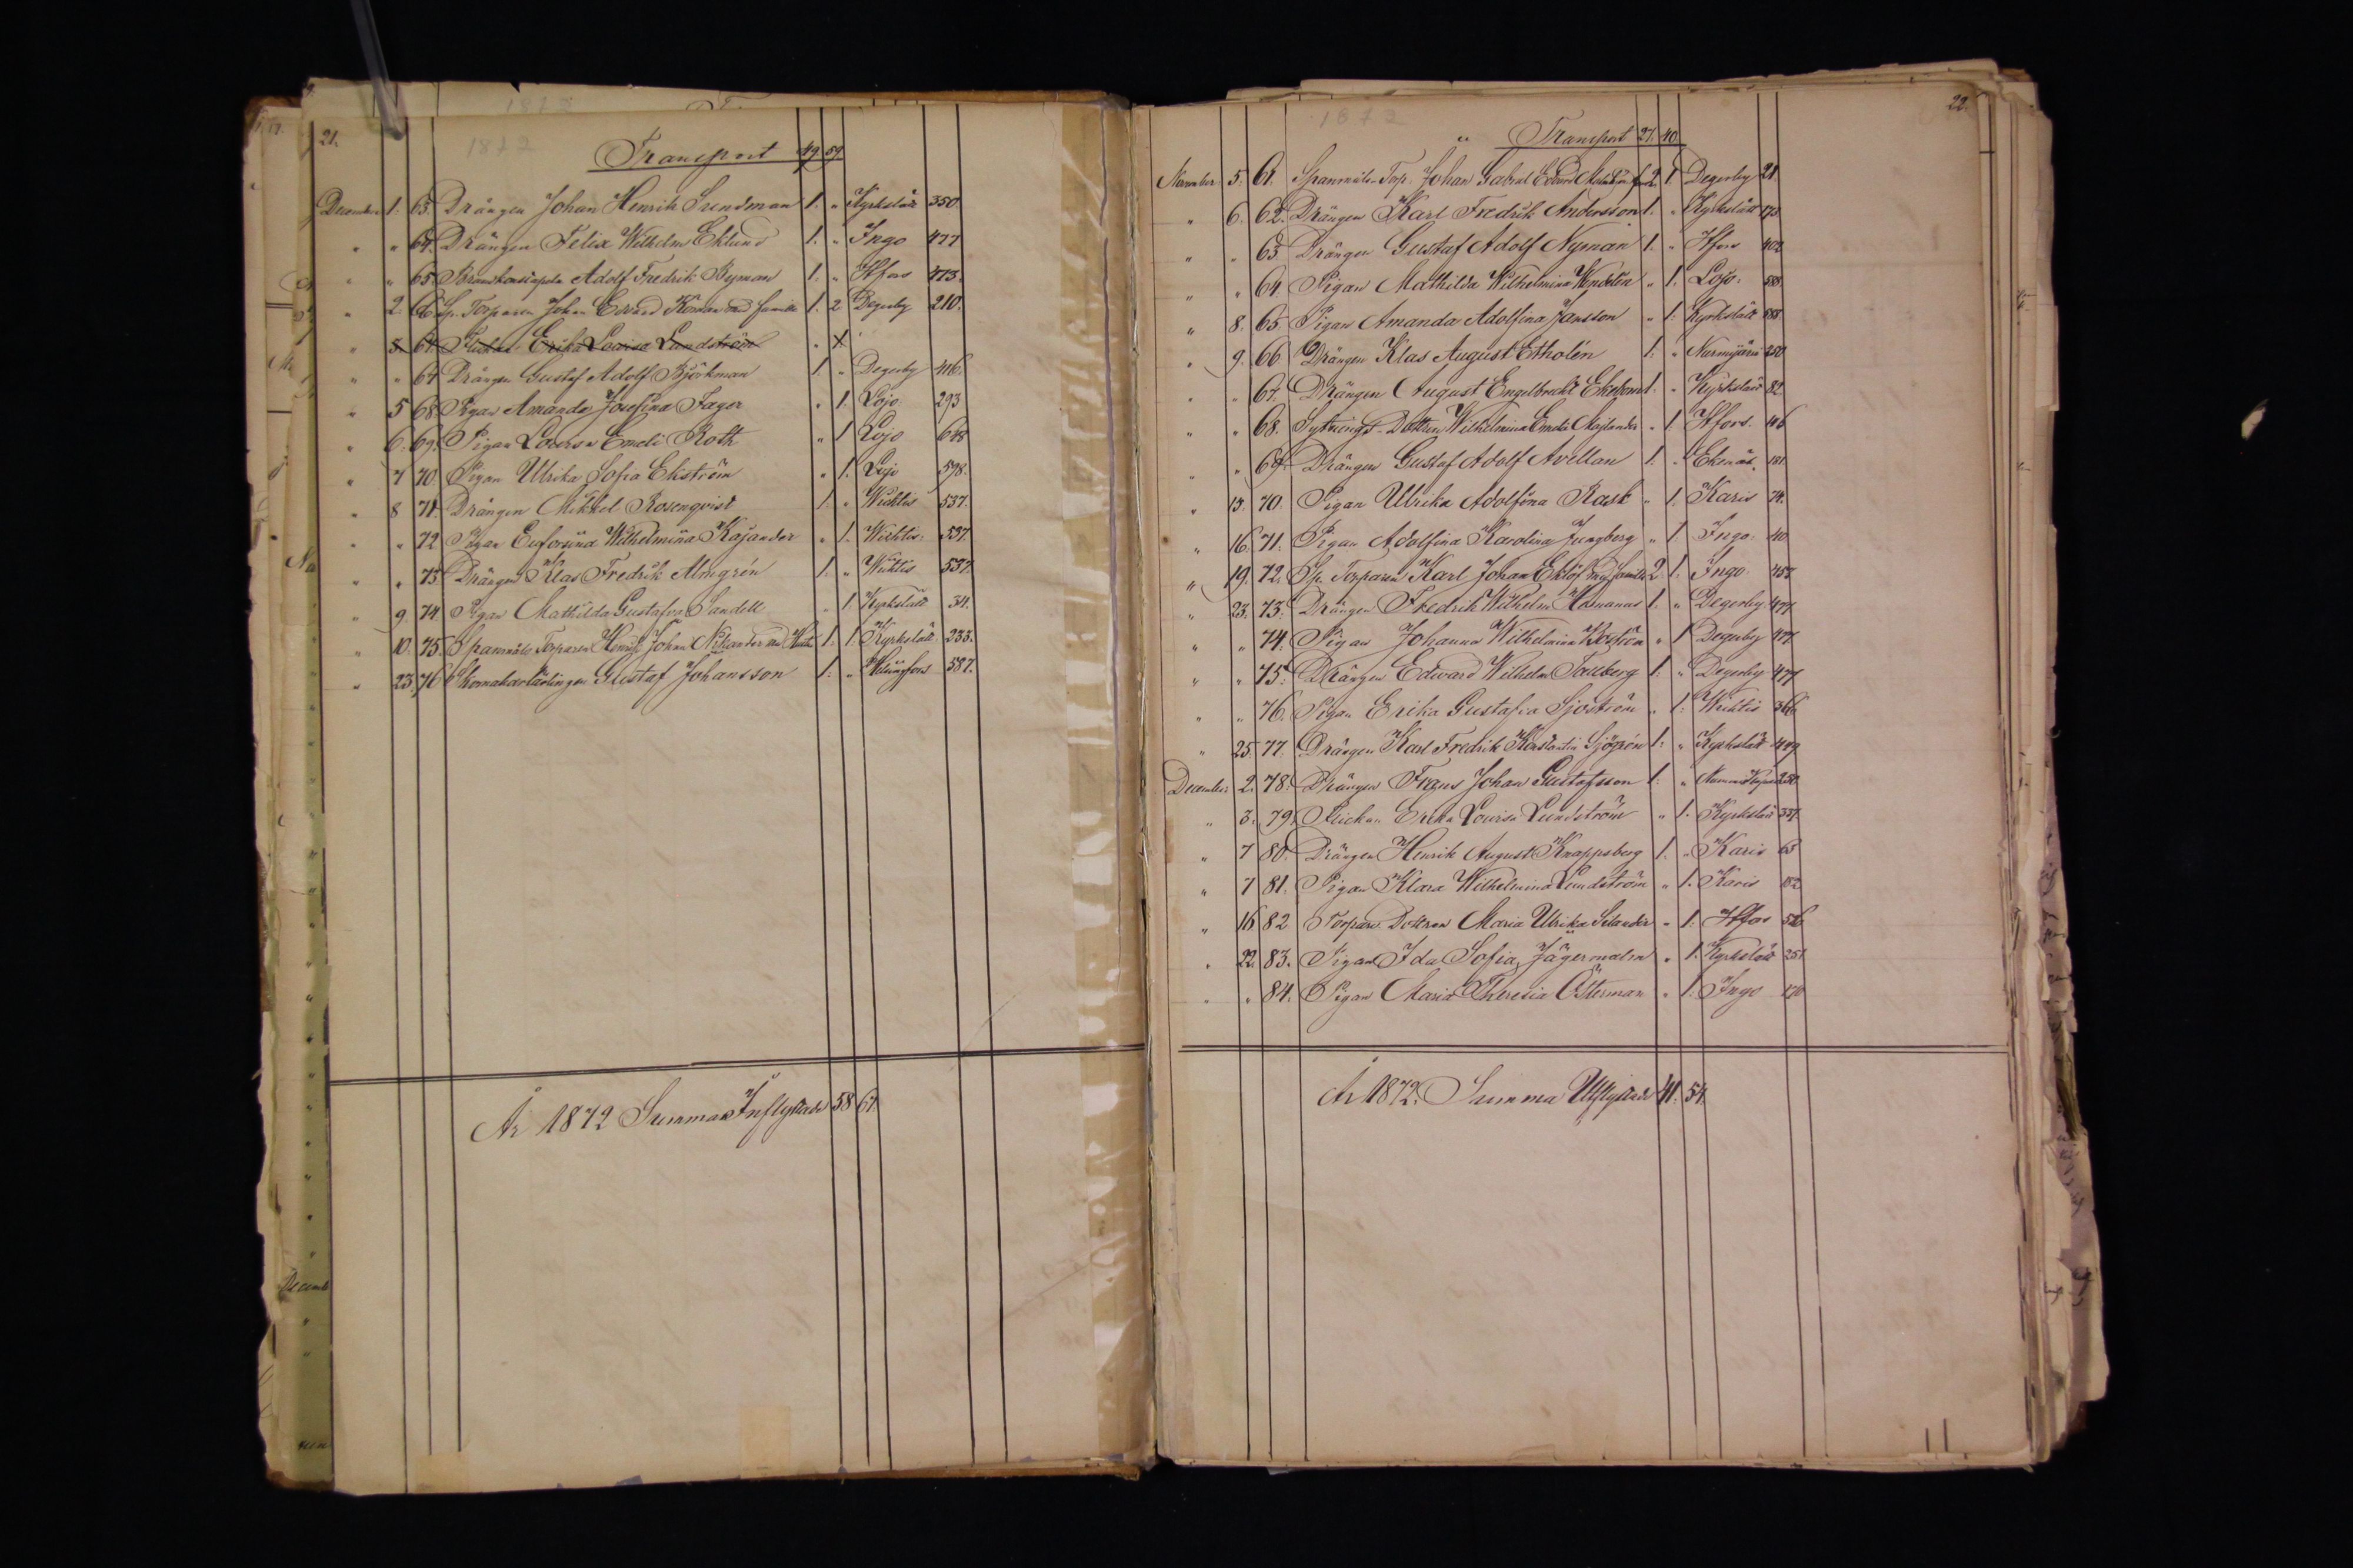 21.
1872
Transport 49 59
December 1. 63. Drängen Johan Henrik Sundman 1. " Kyrkslätt 350
" " 64. Drängen Felix Wilhelm Eklund 1. " Ingo 477
" " 65 Adolf Fredrik Nyman 1. " Hfors 473.
" 2. 66 Sp. Torparen Johan Edvard med familie 1. 2 Degerby 210.
3 67 Flickan Erika Lovisa Lundström " 1
" " 67 Drängen Gustaf Adolf Björkman 1. " Degerby 416.
" 5 68. Pigan Amanda Josefina Fager " 1. Lojo 293
" 6. 69. Pigan Lovisa Emeli Roth " 1 Lojo 648
" 7 70. Pigan Ulrika Sofia Ekström " 1. Lojo 598.
" 8 71. Drängen Mikkel Rosenqvist 1. " Wichtis 537.
" " 72 Pigan Euforsina Wilhelmina Kajander " 1. Wichtis 537.
" " 73 Drängen Klas Fredrik Almgrén 1. " Wichtis 537.
" 9. 74. Pigan Mathilda Gustafva Sandell " 1 Kyrkslätt 34.
" 10. 75. Spanmåls Torparen Henrik Johan Nikander med Hustru 1. 1. Kyrkslätt 233.
" 23 76 Skomakarlärlingen Gustaf Johansson 1. " Helsingfors 587.
År 1872 Summa Inflyttade 58 67.
22.
1872
Transport 27. 40.
November 5. 61. Spanmåls-Torp. Johan Gabriel Edvard 2. 1 Degerby 21.
" 6. 62. Drängen Karl Fredrik Andersson 1. " Kyrkslätt 173
" " 63. Drängen Gustaf Adolf Nyman 1. " Hfors 402
" " 64. Pigan Mathilda Wilhelmina Wendelin " 1. Lojo. 588.
" 8. 65. Pigan Amanda Adolfina Jansson " 1. Kyrkslätt
" 9. 66 Drängen Klas August Etholén 1. " Nurmijärvi 250
" " 67. Drängen August Engelbrecht Ekebom 1. " Kyrkslätt 82
" " 68. Sytnings-Dottren Wilhelmina Emelie " 1 Hfors. 146
" " 69. Drängen Gustaf Adolf Avellan 1. " Ekenäs. 181.
" 13. 70. Pigan Ulrika Adolfina Rask " 1. Karis 74.
" 16. 71. Pigan Adolfina Karolina Jungberg " 1 Ingo. 40
" 19. 72. Sp. Torparen Karl Johan Eklöf med familie 2. 1. Ingo 453
" 23. 73. Drängen Fredrik Wilhelm 1. " Degerby 477
" " 74. Pigan Johanna Wilhelmina Boström " 1 Degerby 477.
" " 75. Drängen Edward Wilhelm Tallberg 1. " Degerby 477
" " 76. Pigan Erika Gustafva Sjöström " 1. Wichtis 366
" 25. 77. Drängen Karl Fredrik Konstantin Sjögrén 1. " Kyrkslätt 449
December 2. 78. Drängen Frans Johan Gustafsson 1. " 250.
" 3. 79. Flickan Erika Lovisa Lundström " 1. Kyrkslätt 337.
" 7 80. Drängen Henrik August Knappsberg 1. " Karis 63
" 7 81. Pigan Klara Wilhelmina Lundström " 1. Karis 152
" 16 82 Torpare Dottren Maria Ulrika Selander " 1. Hfors 526
" 22. 83. Pigan Ida Sofia Jägermalm " 1. Kyrkslätt 251
" " 84. Pigan Maria Theresia Österman " 1. Ingo 170
År 1872. Summa Utflyttade 41. 54.